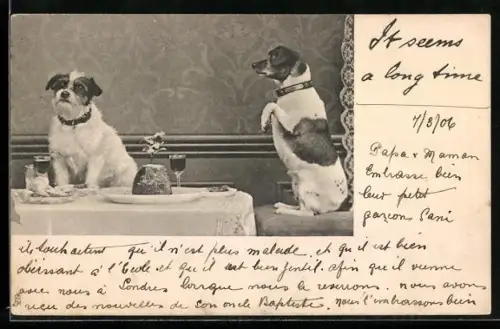 It seems
a long time
7/3/06
Papa & Maman
Embrasse bien
leur petit
garcons Dani
ils souhaitent qu'il n'est plus malade, et qu'il est bien
obéissant à l'Ecole et qu'il est bien gentil. afin qu'il vienne
avec nous à Londres lorsque nous le reverrons. nous avons
reçu des nouvelles de con oncle Baptiste, nous l'embrassons bien